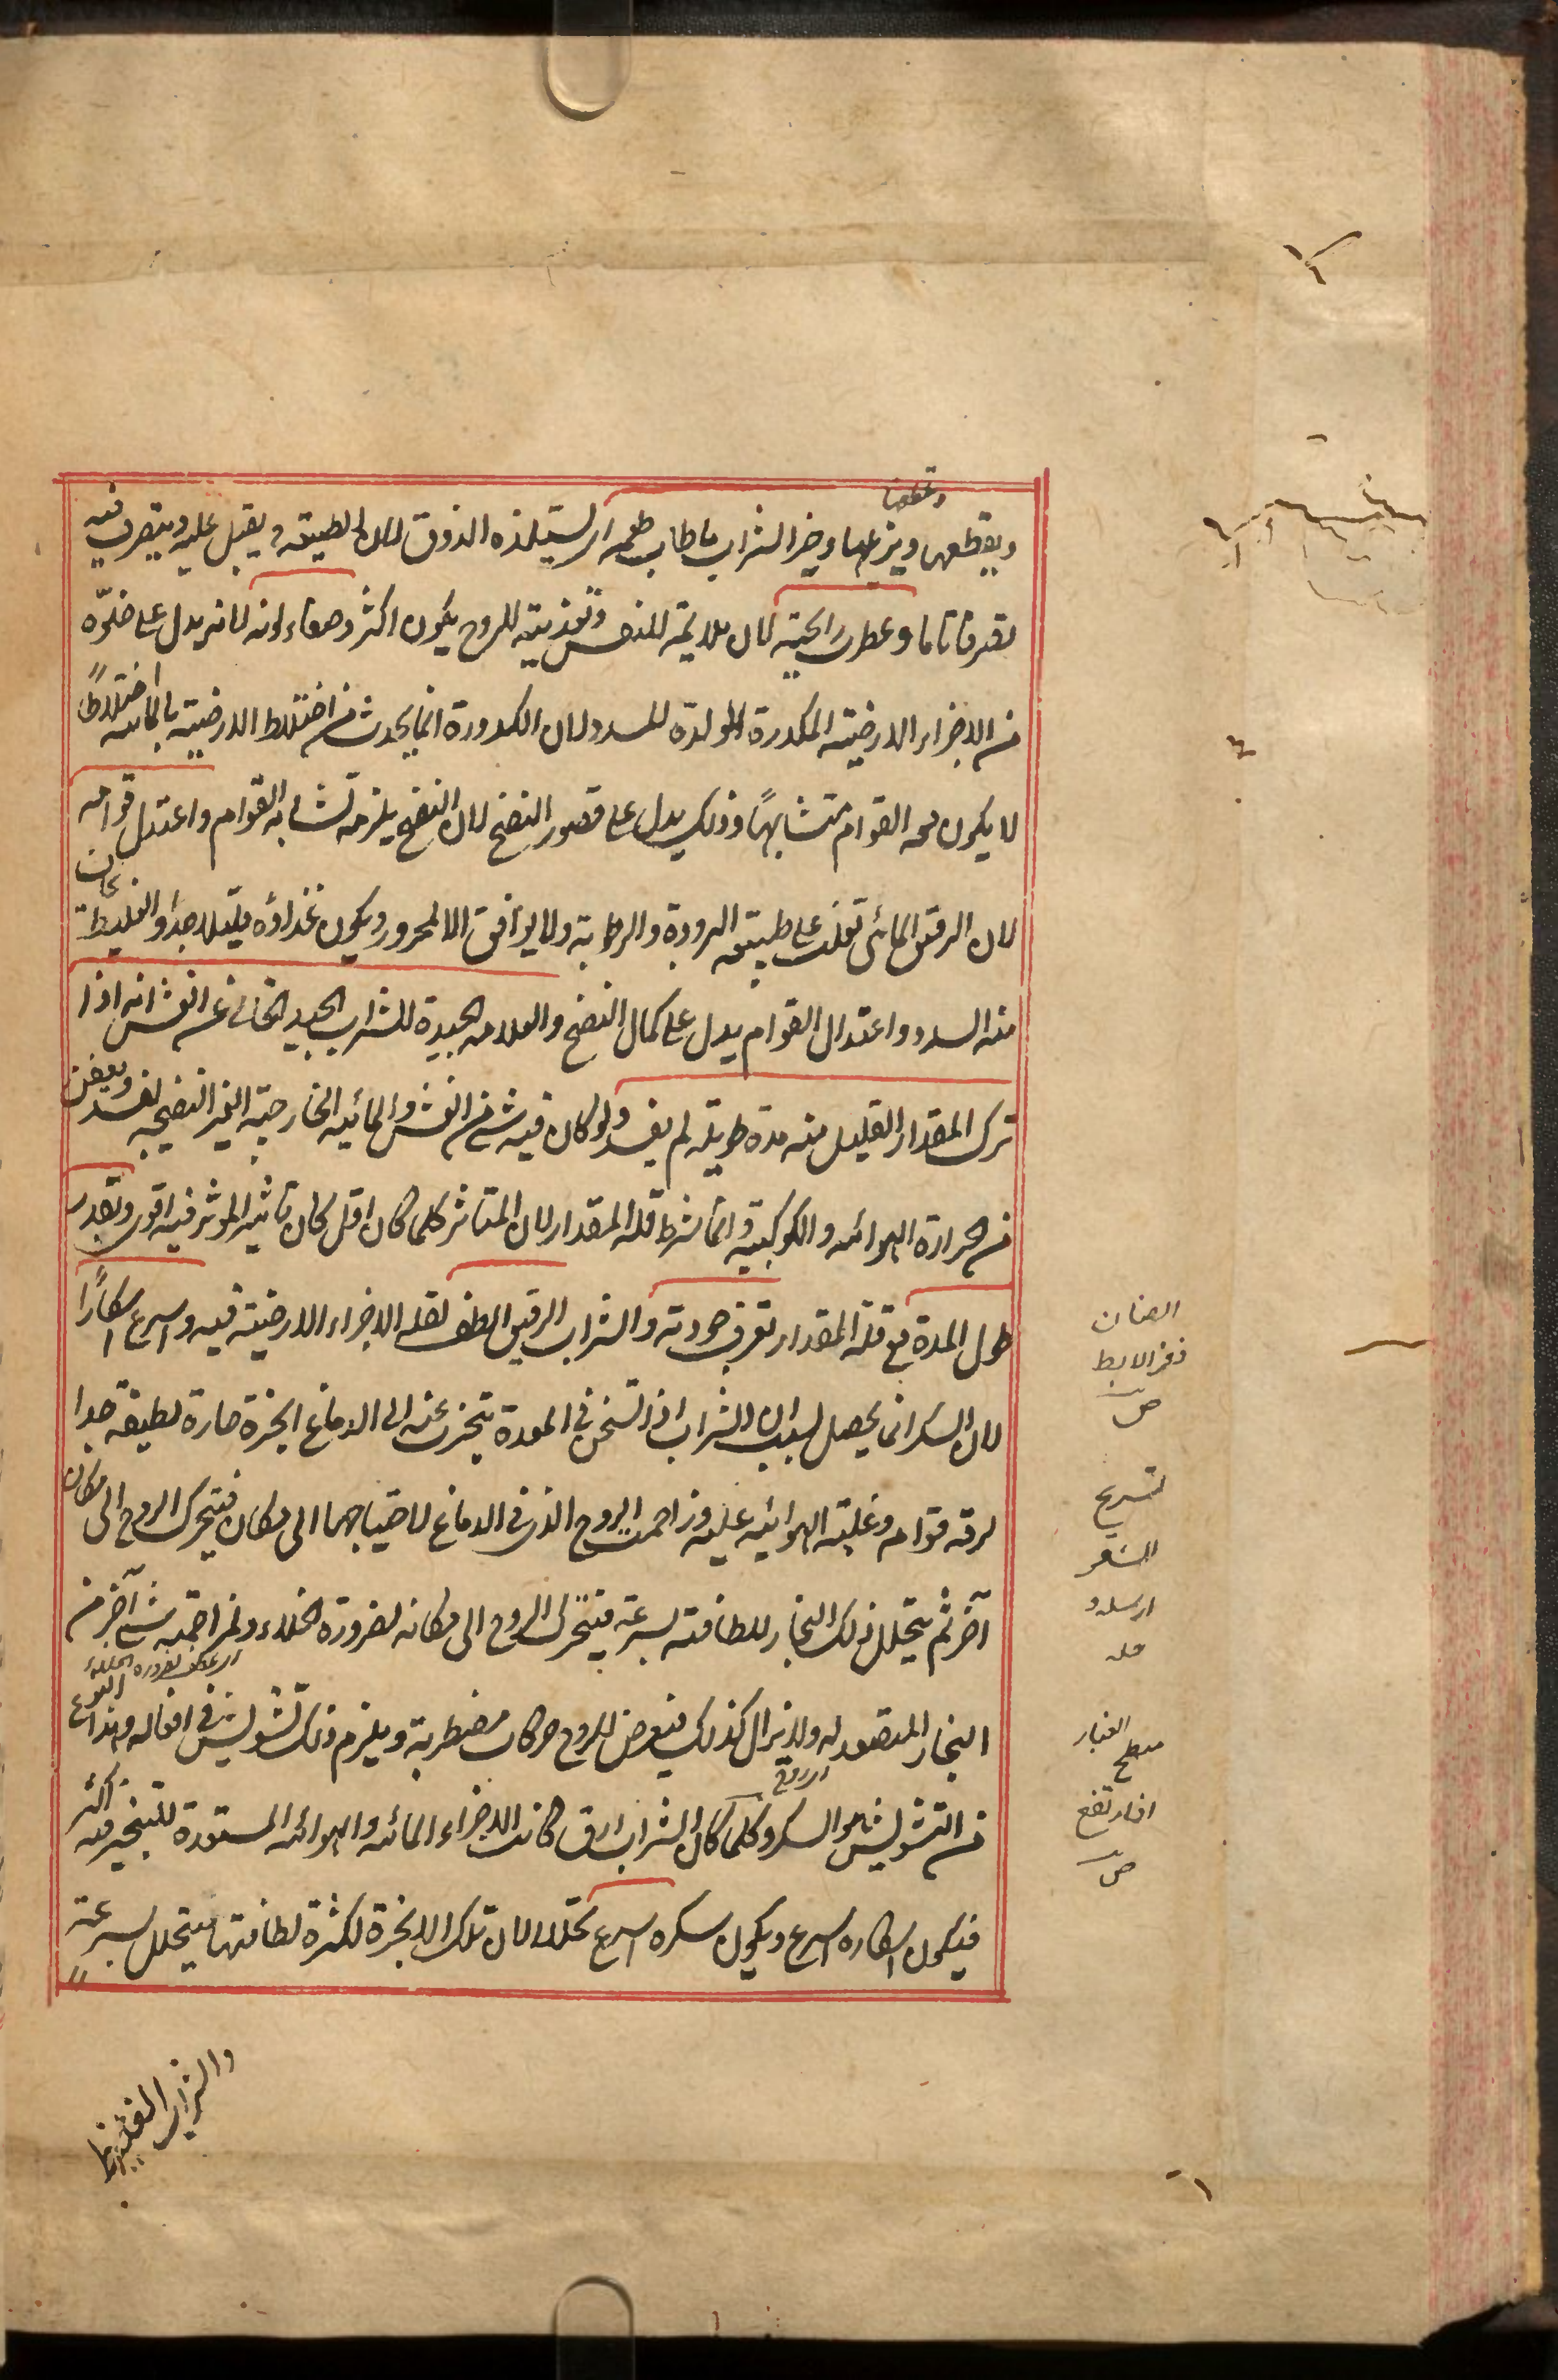 ويقطعها ويزعها وخير الشراب ما طاب طعمه اى يستلذه الذوق لان الطبيعة يقبل عليه ويتصرف فيه
تصرفا تاما وعطرت رائحته لان ملايمته للنفس وتغذيته للروح يكون اكثر وصفاء لونه لانه يدل على خلوّه
من الاجزاء الارضية المكدرة المولدة للسدد لان الكدورة انما يحدث من اختلاط الارضية بالمائية اختلاطًا
لا يكون معه القوام متشابهًا وذلك يدل على قصور النضج لان النضج يلزمه تشابه القوام واعتدل قوامه
لان الرقيق المائى تغلب على طبيعته البرودة والرطوبة ولا يوافق الا المحرور ويكون غذاؤه قليلا جدا والغليظ يخاف
منه السدد واعتدال القوام يدل على كمال النضج والعلامة الجيدة للشراب الجيد الخالى عن الغش انه اذا
ترك المقدار القليل منه مدة طويلة لم يفسد ولو كان فيه شئ من الغش والمائية الخارجية الغير النضيجة لفسد وتعفن
من الحرارة الهوائية والكوكبية وانما شرط قلة المقدار لان المتاثر كلما كان اقل كان تاثير المؤثر فيه اقوى وبقدر
طول المدة مع قلة المقدار تعرف جودته والشراب الرقيق الطف لقلة الاجزاء الارضية فيه واسرع اسكارًا
لان السكر انما يحصل بسبب ان الشراب اذا تسخن فى المعدة يتبخر عنه الى الدماغ ابخرة حارة لطيفة جدا
لرقة قوامه وغلبة الهوائية عليه وزاحمت الروح الذى فى الدماغ لاحتياجهما الى مكان فيتحرك الروح الى مكان
آخر ثم يتحلل ذلك البخار للطافته بسرعة فيتحرك الروح الى مكانه لضرورة الخلاء ولمزاحمة شئ آخر من
البخار المتصعد له ولا يزال كذلك فيعرض للروح حركات مضطربة ويلزم ذلك تشويش فى افعاله وهذا النوع
من التشويش هو السكر وكلما كان الشراب ارق كانت الاجزاء المائية والهوائية المستعدة للتبخير فيه اكثر
فيكون اسكاره اسرع ويكون سكره اسرع تحللا لان تلك الابخرة لكثرة لطافتها يتحلل بسرعة
والشراب الغليظ
الصنان
ذفر الابط
ص
تسريح
الشعر
ارساله و
حله
سطع
الغبار
اذا ارتفع
ص